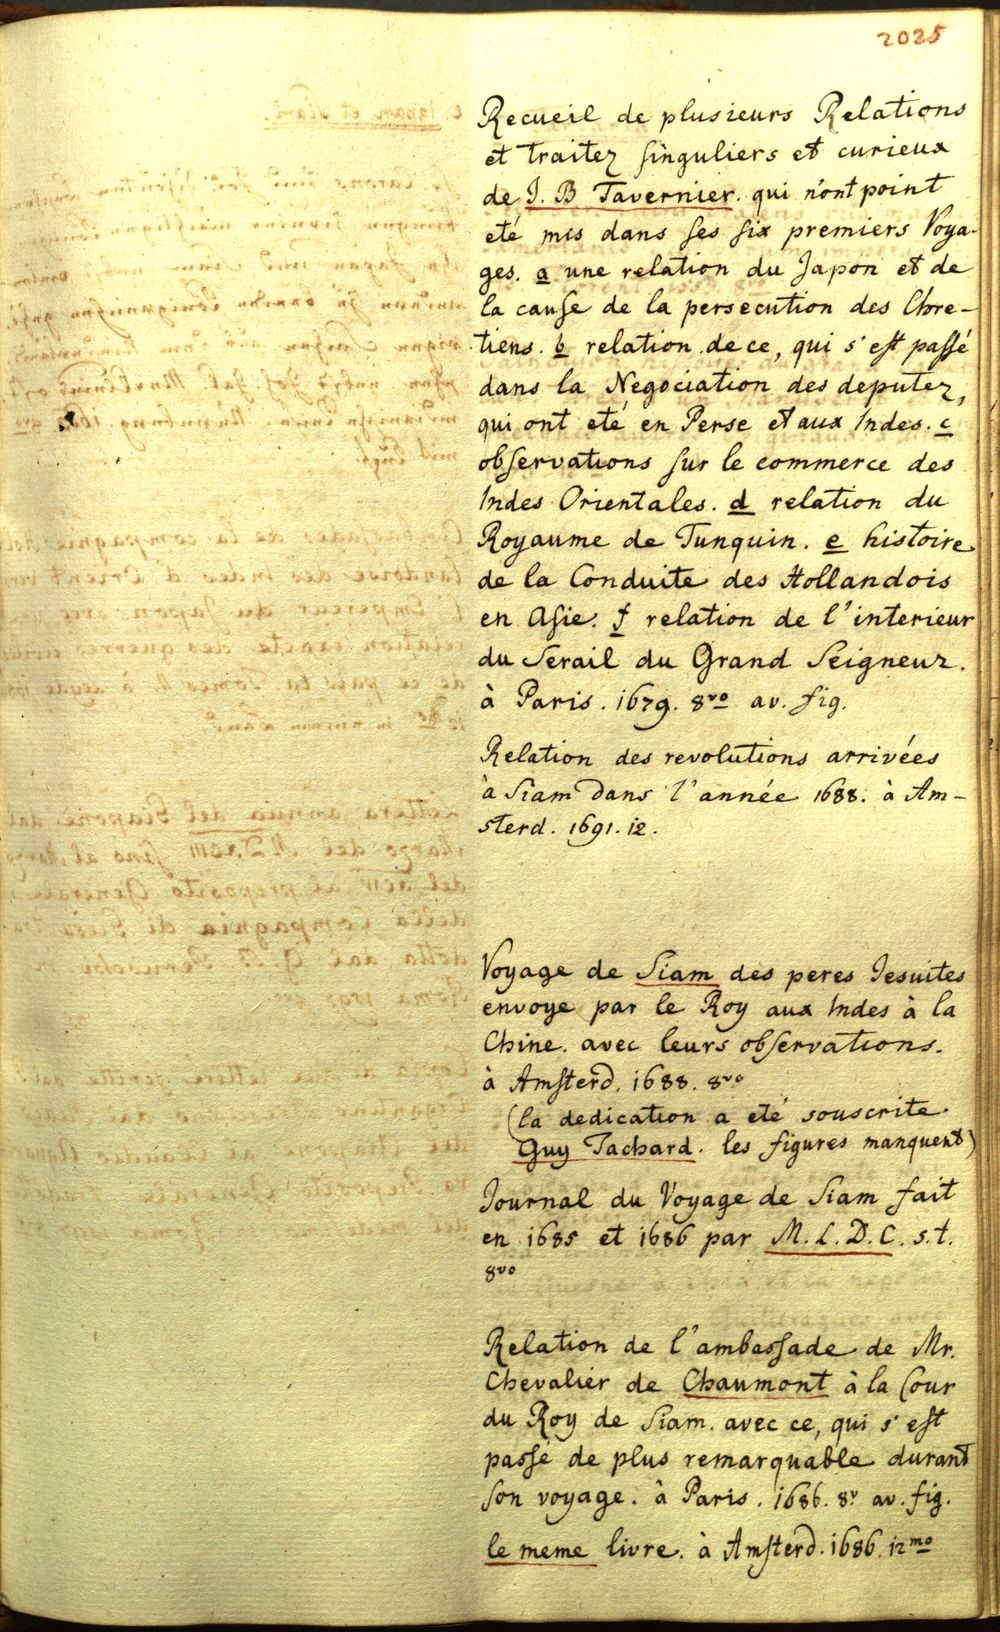 2025
Recueil de plusieurs Relations
et traitez singuliers et curieux
de J. B Tavernier. qui n'ont point
eté mis dans ses six premiers Voya-
ges. a une relation du Japon et de
la cause de la persecution des Chre-
tiens. b relation de ce, qui s'est passé
dans la Negociation des deputez,
qui ont eté en Perse et aux Indes. c
observations sur le commerce des
Indes Orientales. d relation du
Royaume de Tunquin. e histoire
de la Conduite des Hollandois
en Asie. f relation de l'interieur
du Serail du Grand Seigneur.
à Paris. 1679. 8vo av. fig.
Relation des revolutions arrivées
à Siam dans l'année 1688. à Am-
sterd. 1691. 12.
Voyage de Siam des peres Jesuites
envoye par le Roy aux Indes à la
Chine. avec leurs observations.
à Amsterd. 1688. 8vo
(la dedication a eté souscrite
Guy Tachard. les figures manquent)
Journal du Voyage de Siam fait
en 1685 et 1686 par M. L. D. C. s.t.
8vo
Relation de l'ambassade de Mr.
Chevalier de Chaumont à la Cour
du Roy de Siam. avec ce, qui s'est
passé de plus remarquable durant
son voyage. à Paris. 1686. 8v av. fig.
le meme livre. à Amsterd. 1686. 12mo